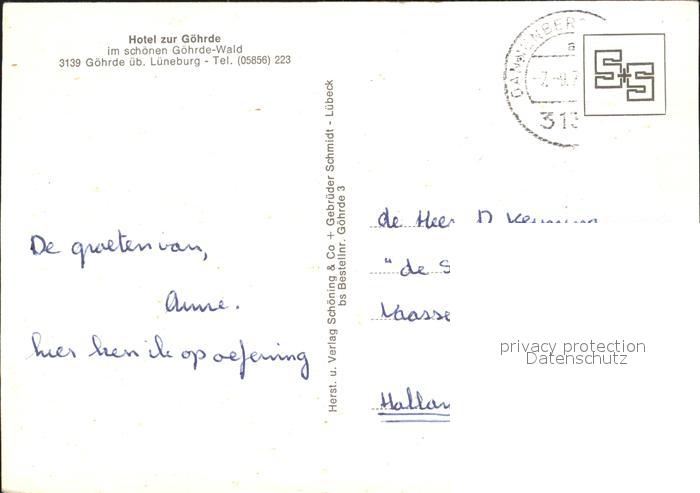 Hotel zur Göhrde
im schönen Göhrde-Wald
3139 Göhrde üb. Lüneburg - Tel. (05856) 223
De groeten van,
Anne.
hier ben ik op oefening
Herst. u. Verlag Schöning & Co + Gebrüder Schmidt - Lübeck
bs Bestellnr. Göhrde 3
DANNENBER
a
313
S+S
de Heer D
"de S
Vaasse
Hollan
privacy protection
Datenschutz